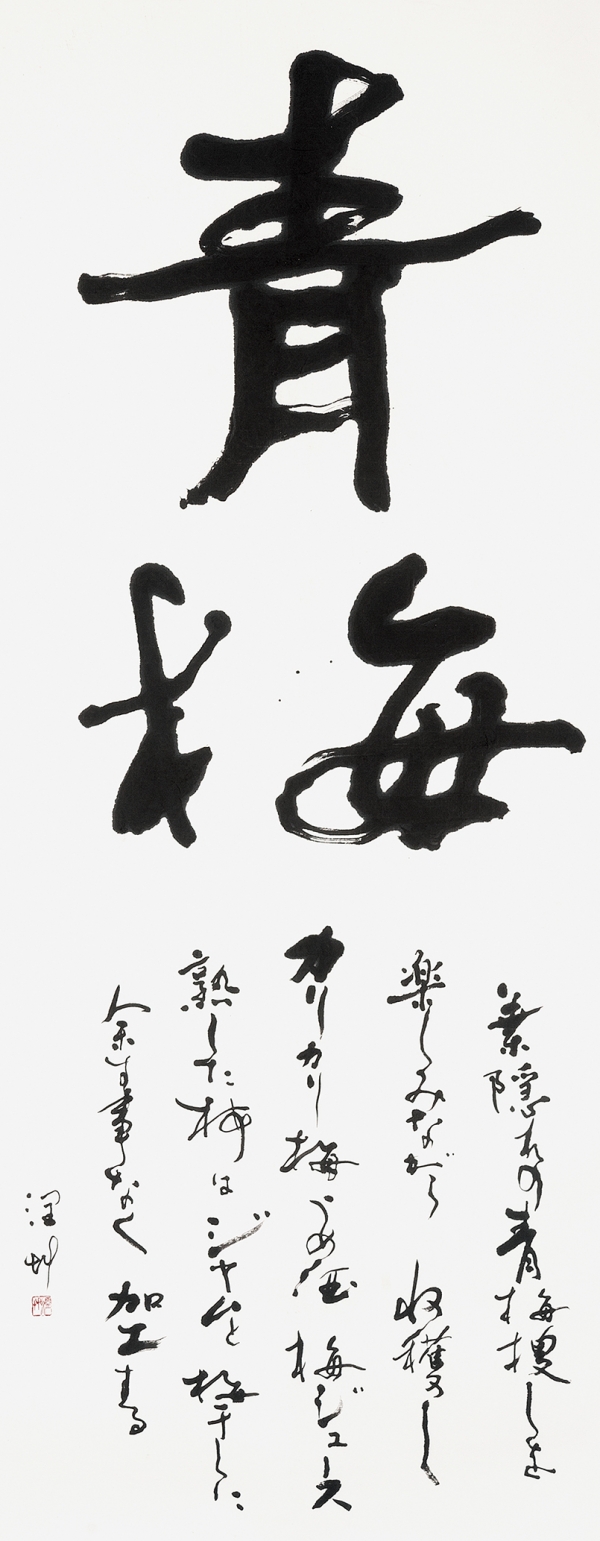 青梅
葉隠れの青梅捜しを
楽しみながら 収穫し
カリカリ梅 うめ酒 梅ジュース
熟した梅はジャムと梅干しに
余す事なく 加工する
深艸